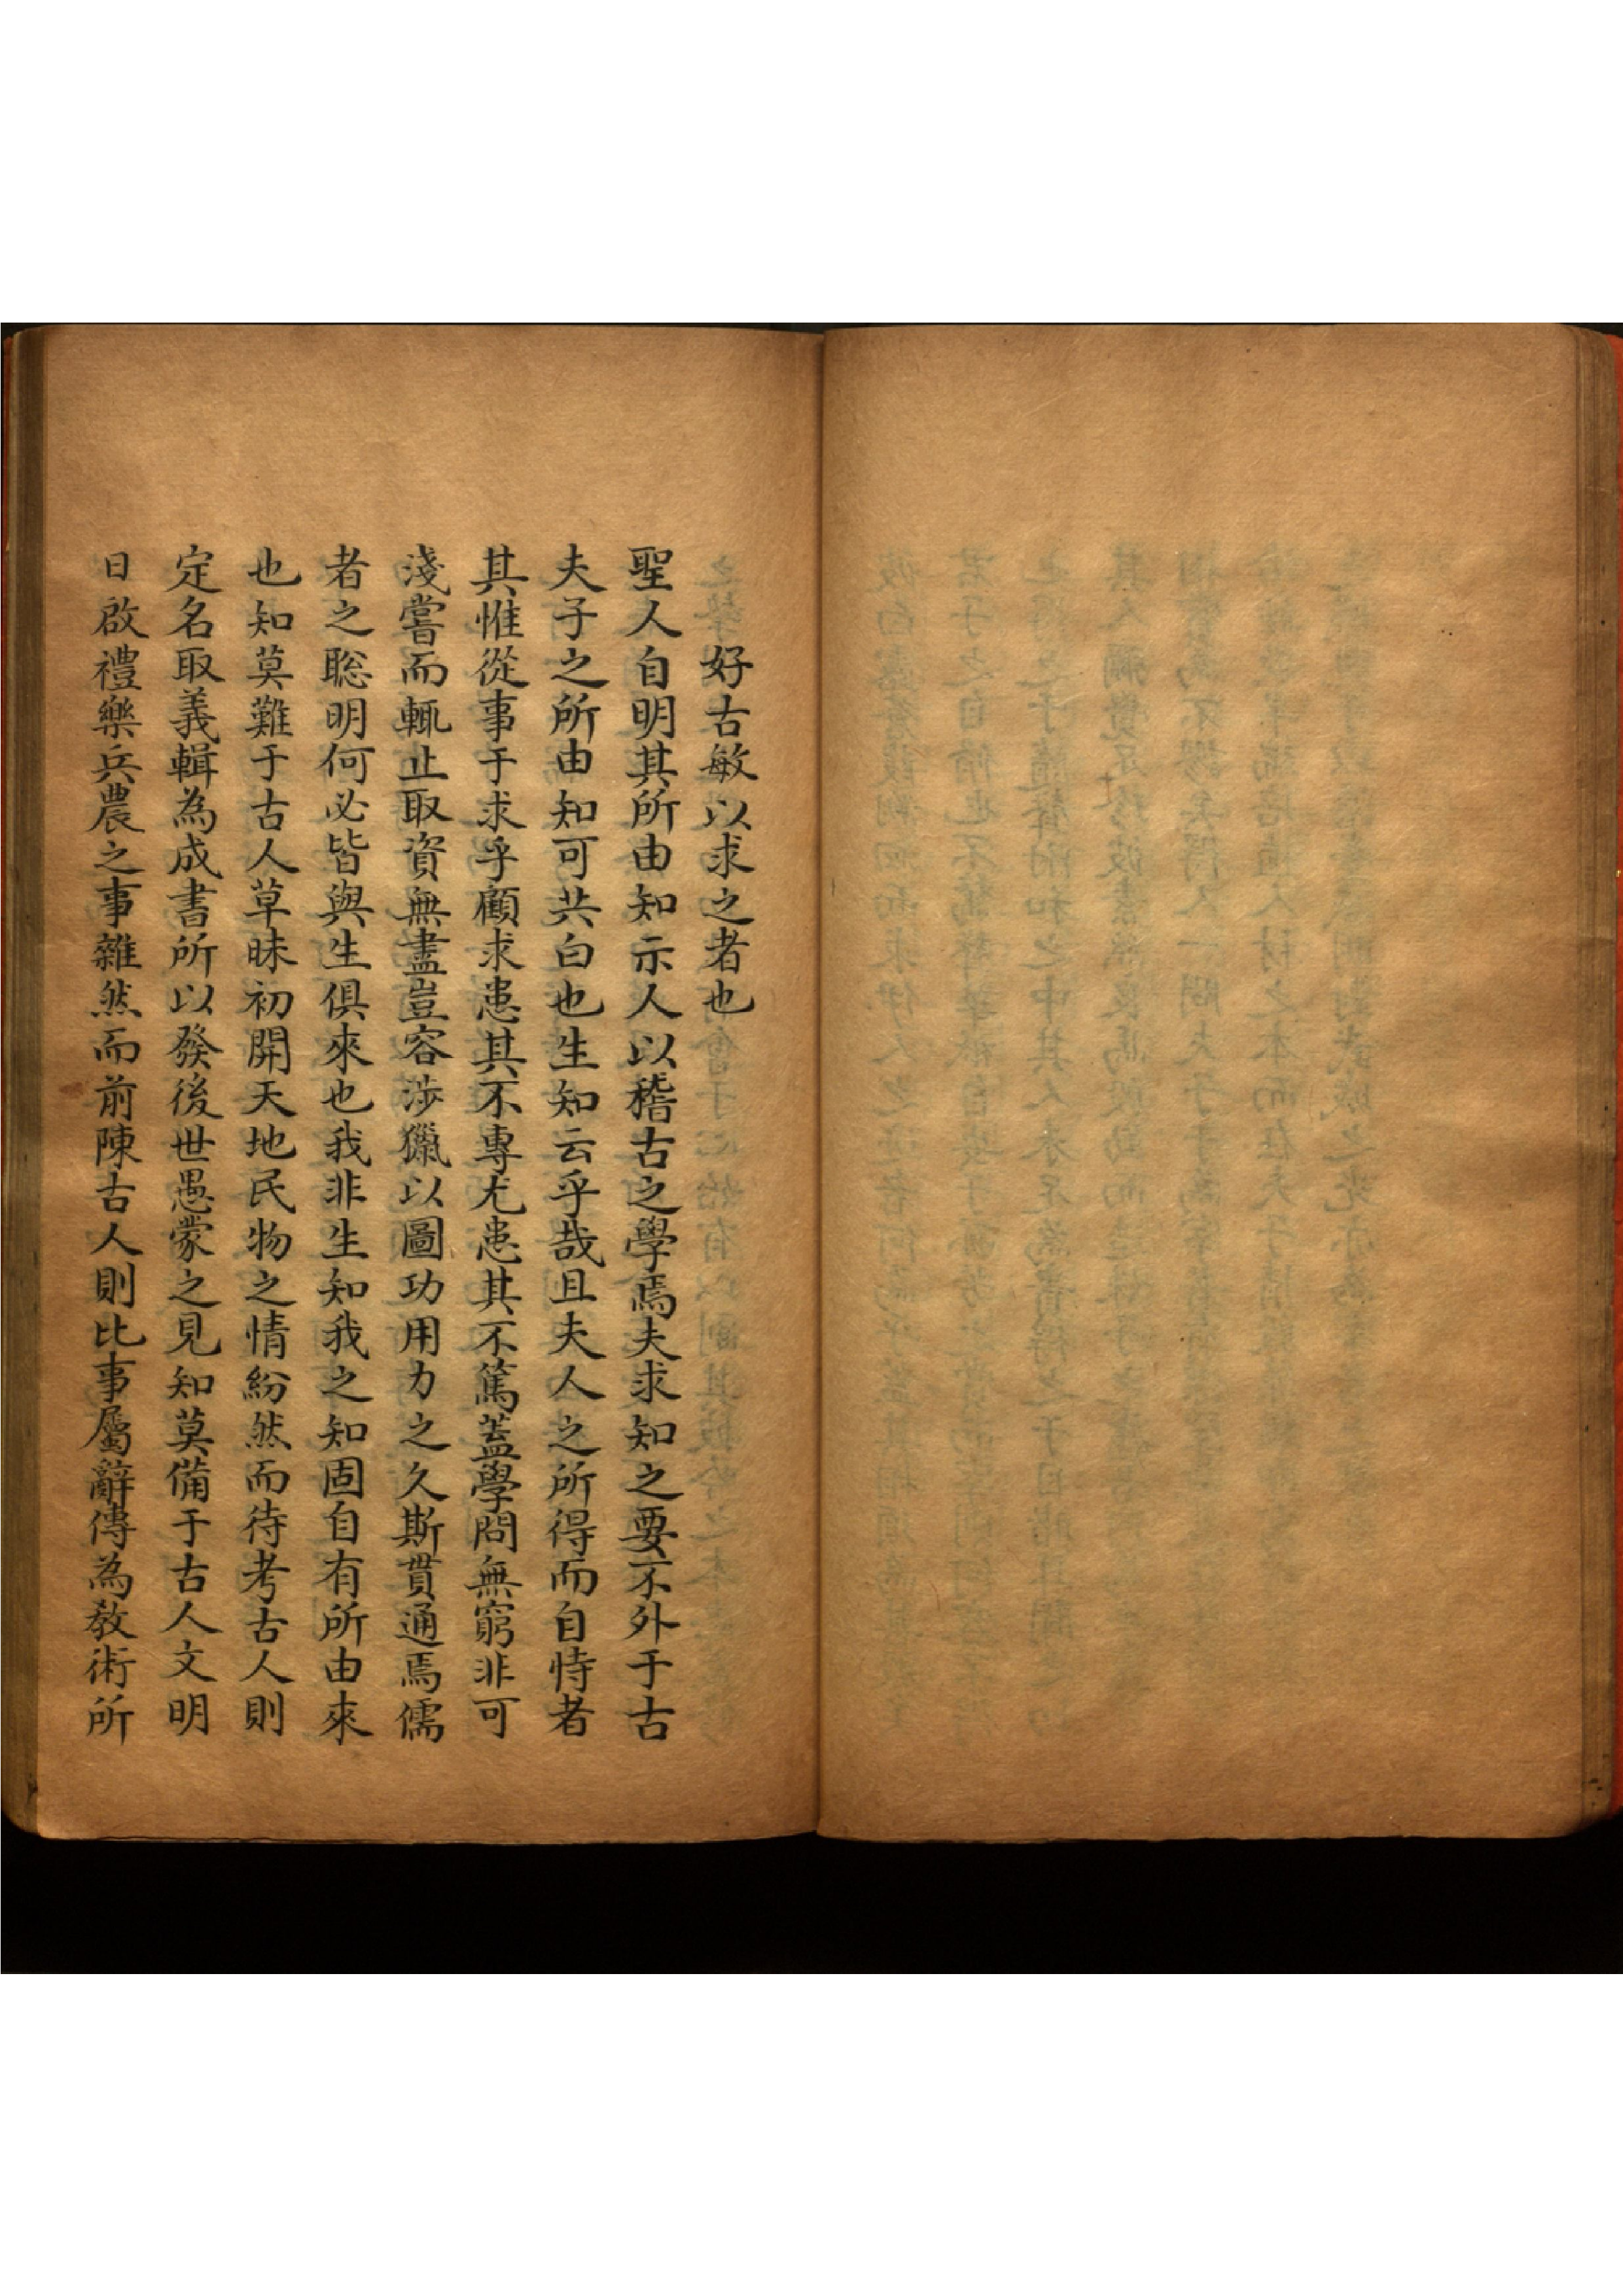 好古敏以求之者也
聖人自明其所由知示人以稽古之學焉夫求知之要不外于古
夫子之所由知可共白也生知云乎哉且夫人之所得而自恃者
其惟從事于求乎顧求患其不專尤患其不篤蓋學問無窮非可
淺嘗而輒止取資無盡豈容涉獵以圖功用力之久斯貫通焉儒
者之聡明何必皆與生俱來也我非生知我之知固自有所由來
也知莫難于古人草昧初開天地民物之情紛然而待考古人則
定名取義輯為成書所以發後世愚蒙之見知莫備于古人文明
日啟禮樂兵農之事雜然而前陳古人則比事屬辭傳為教術所